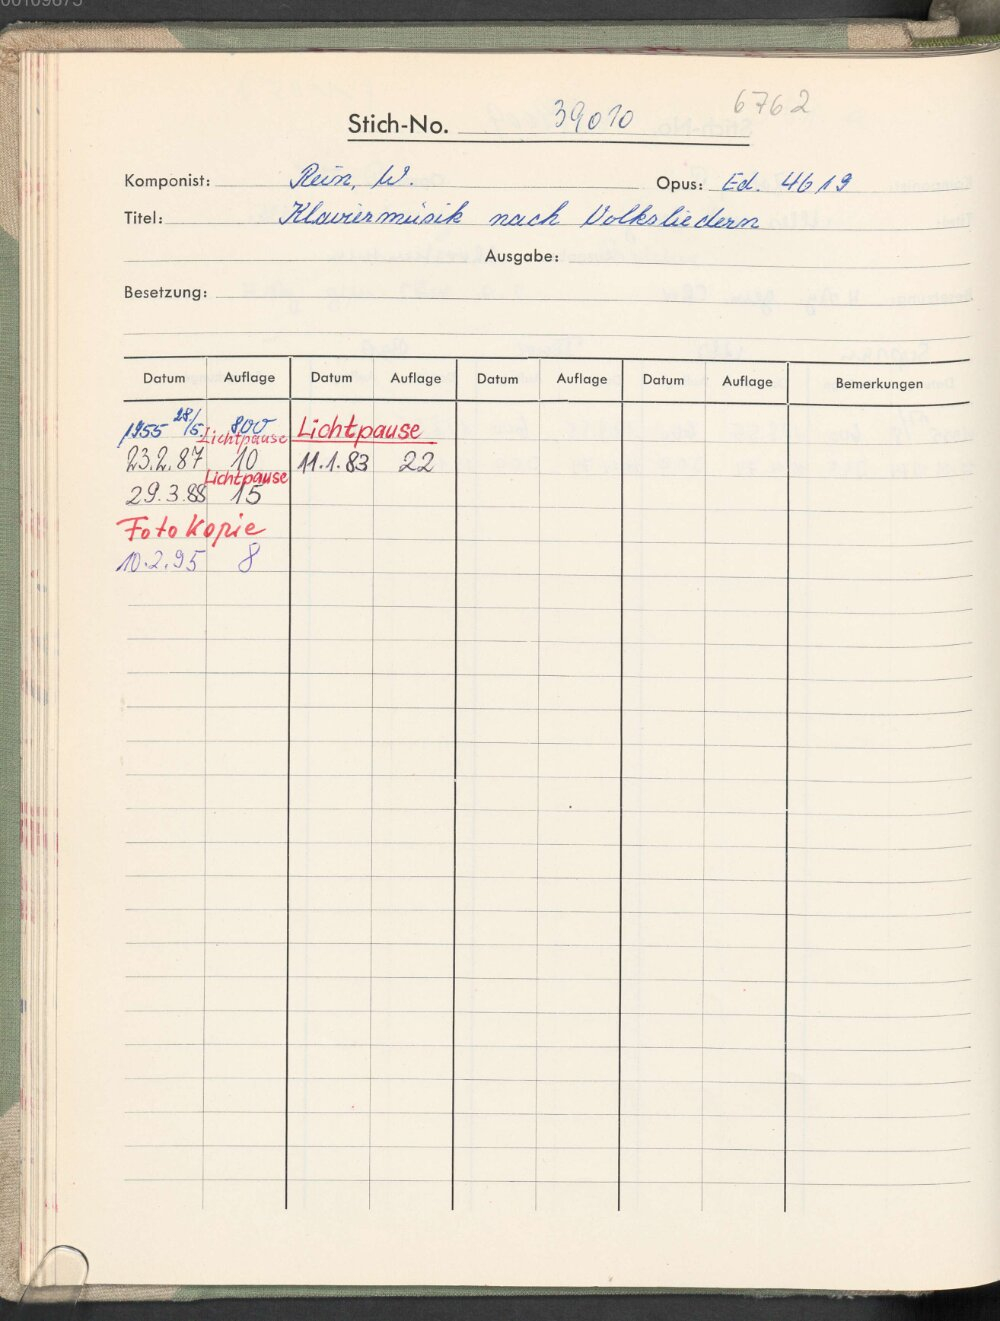 6762
Stich-No. 39010
Komponist: Rein, W. Opus: Ed. 4619
Titel: Klaviermusik nach Volksliedern
Ausgabe:
Besetzung:
Datum Auflage Datum Auflage Datum Auflage Datum Auflage Bemerkungen
1955 28/5. 800 Lichtpause
Lichtpause
23.2.87 10 11.1.83 22
Lichtpause
29.3.88 15
Fotokopie
10.2.95 8